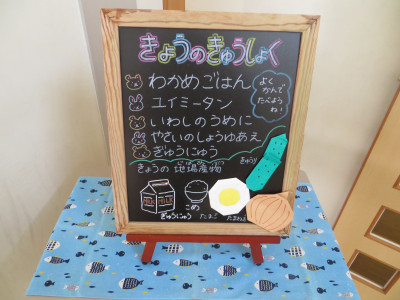 きょうのきゅうしょく
わかめごはん
ユイミータン
いわしのうめに
やさいのしょうゆあえ
ぎゅうにゅう
よく
かんで
たべよう
ね!
きょうの 地場産物
じばさんぶつ
きゅうり
MILK
ぎゅうにゅう
こめ
たまご
たまねぎ